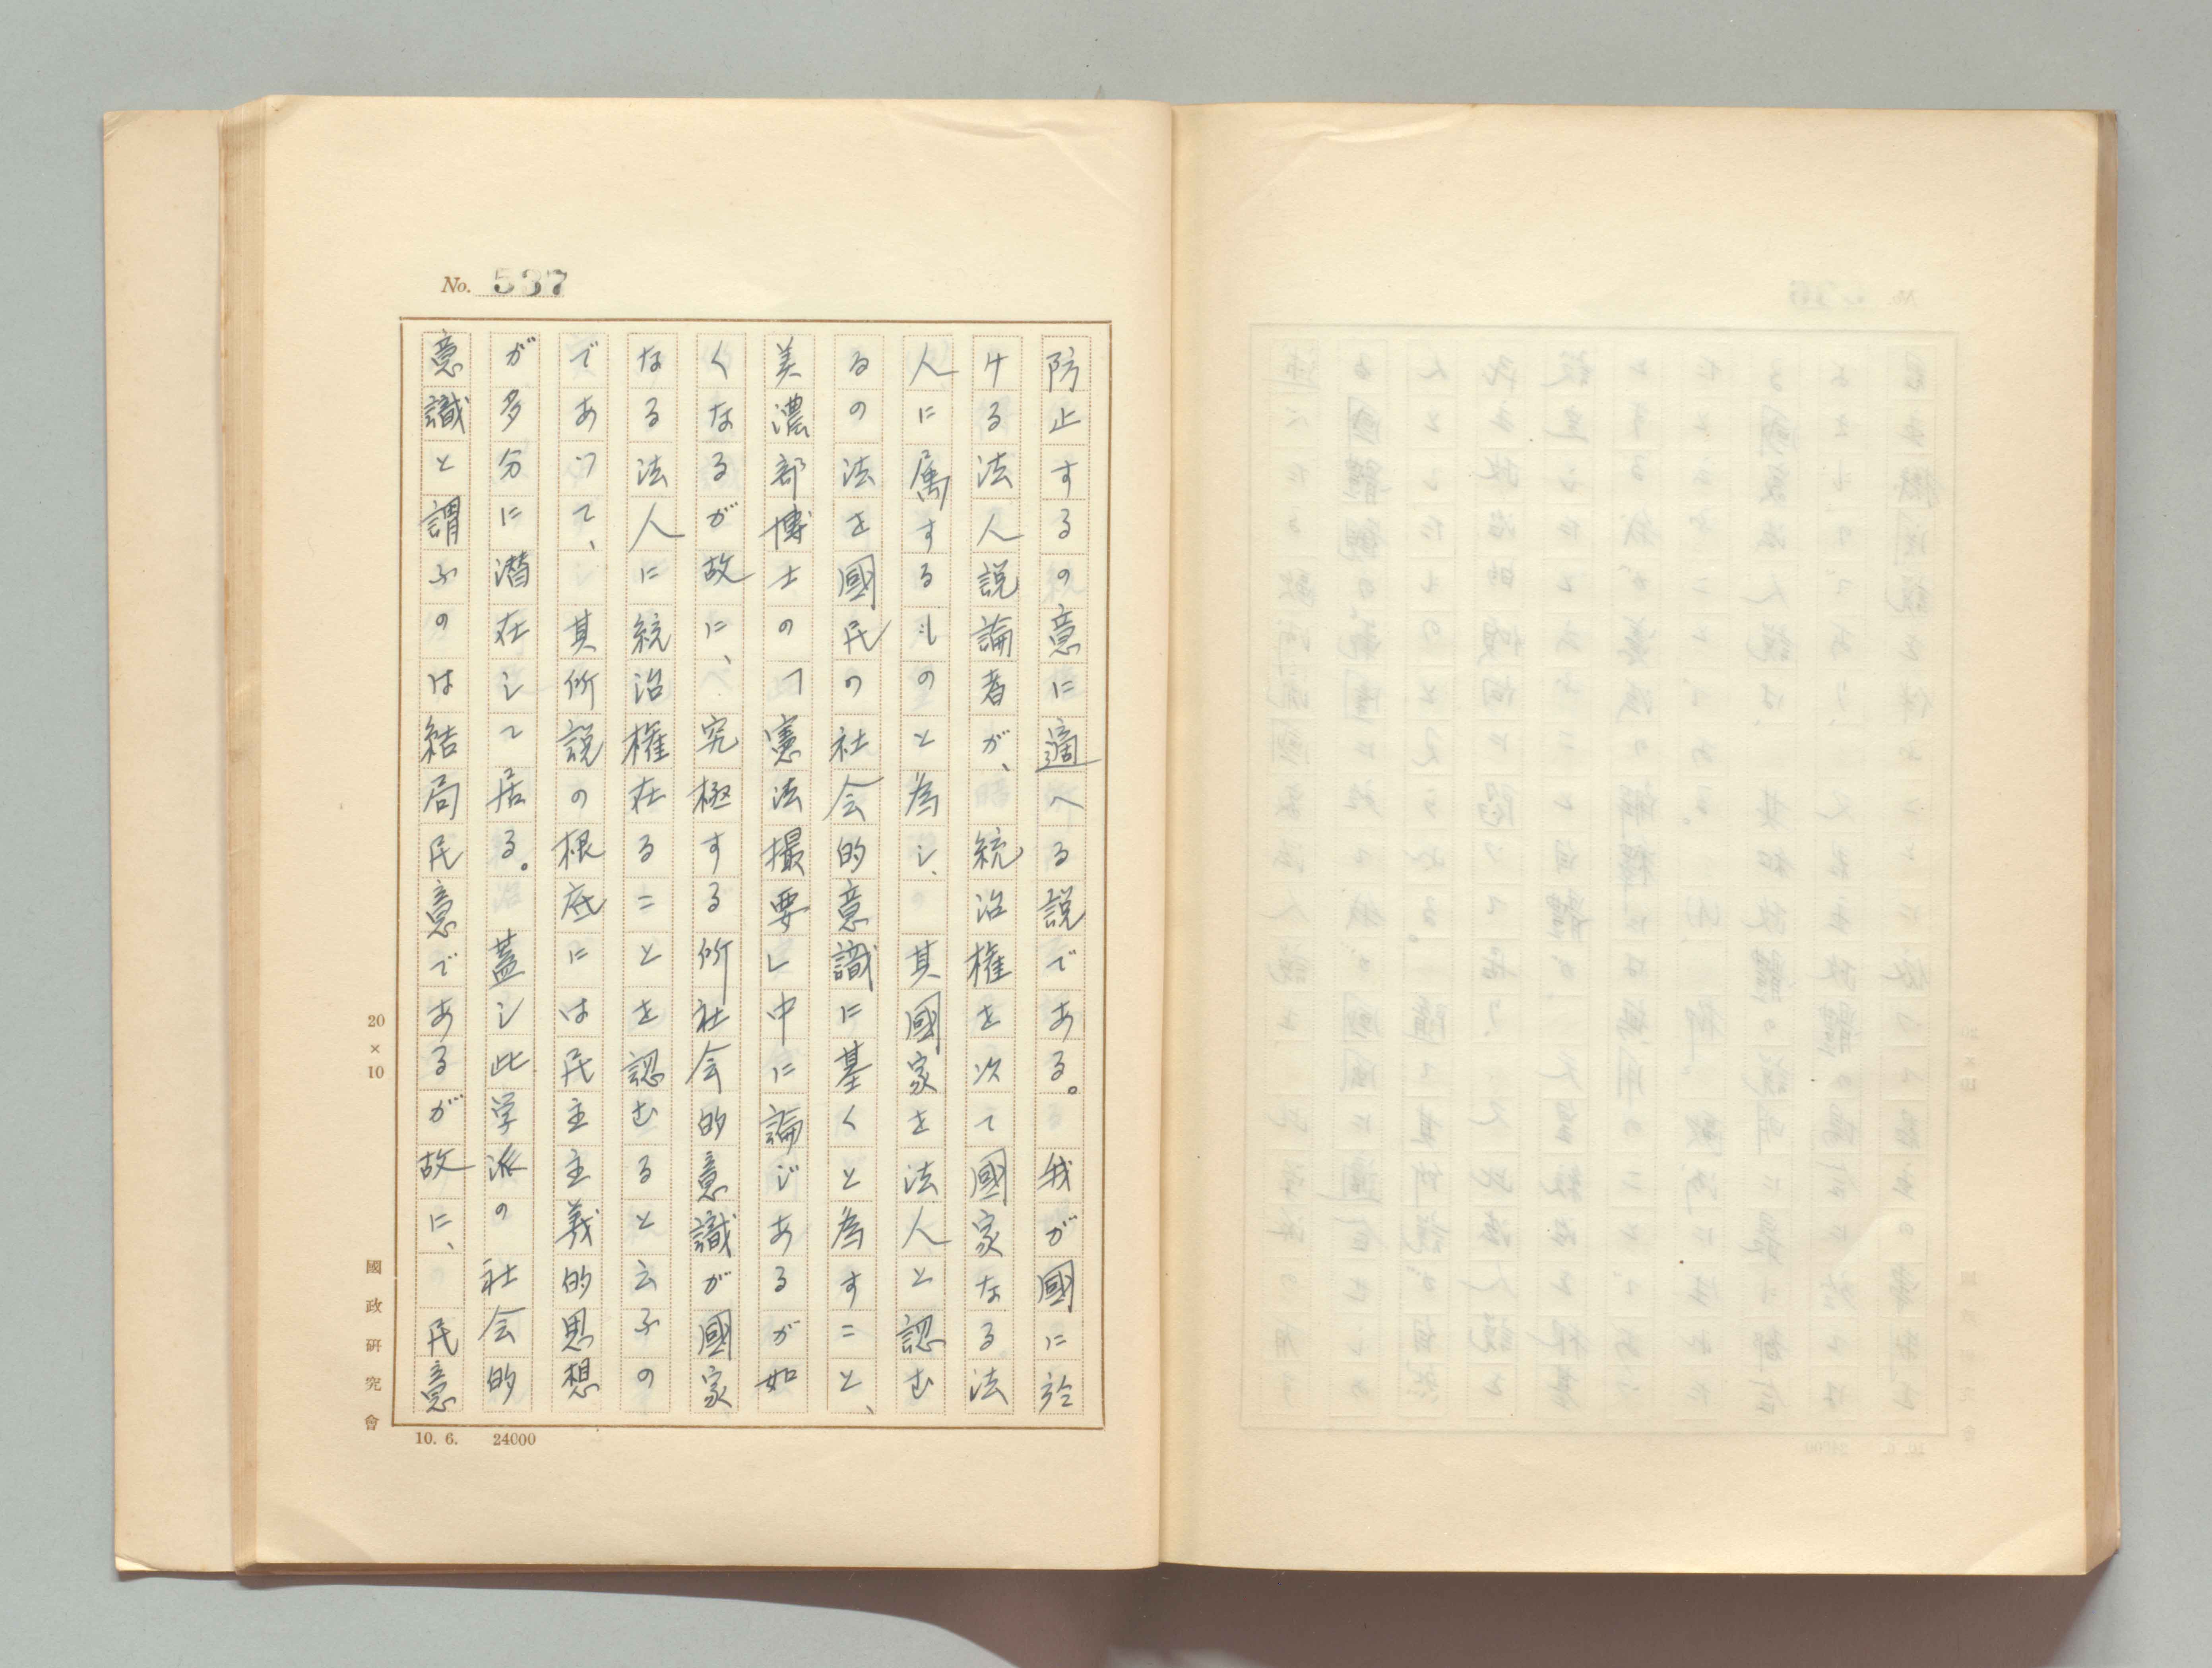 No. 537
防止するの意に適へる説である。 我が國に於
ける法人説論者が、 統治権を以て國家なる法
人に属するものと為し、 其國家を法人と認む
るの法を國民の社会的意識に基くと為すこと、
美濃部博士の「憲法撮要」中に論じあるが如
くなるが故に、 究極する所社会的意識が國家
なる法人に統治権在ることを認むると云ふの
であつて、 其所説の根底には民主主義的思想
が多分に潜在して居る。 蓋し此学派の社会的
意識と謂ふのは結局民意であるが故に、 民意
20×10
國政研究會
10. 6. 24000